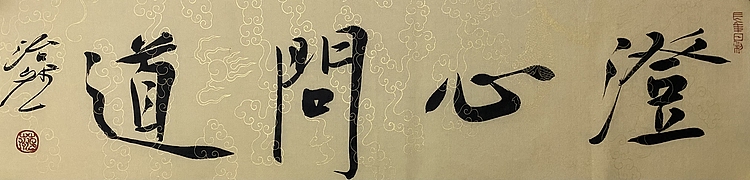 澄心問道